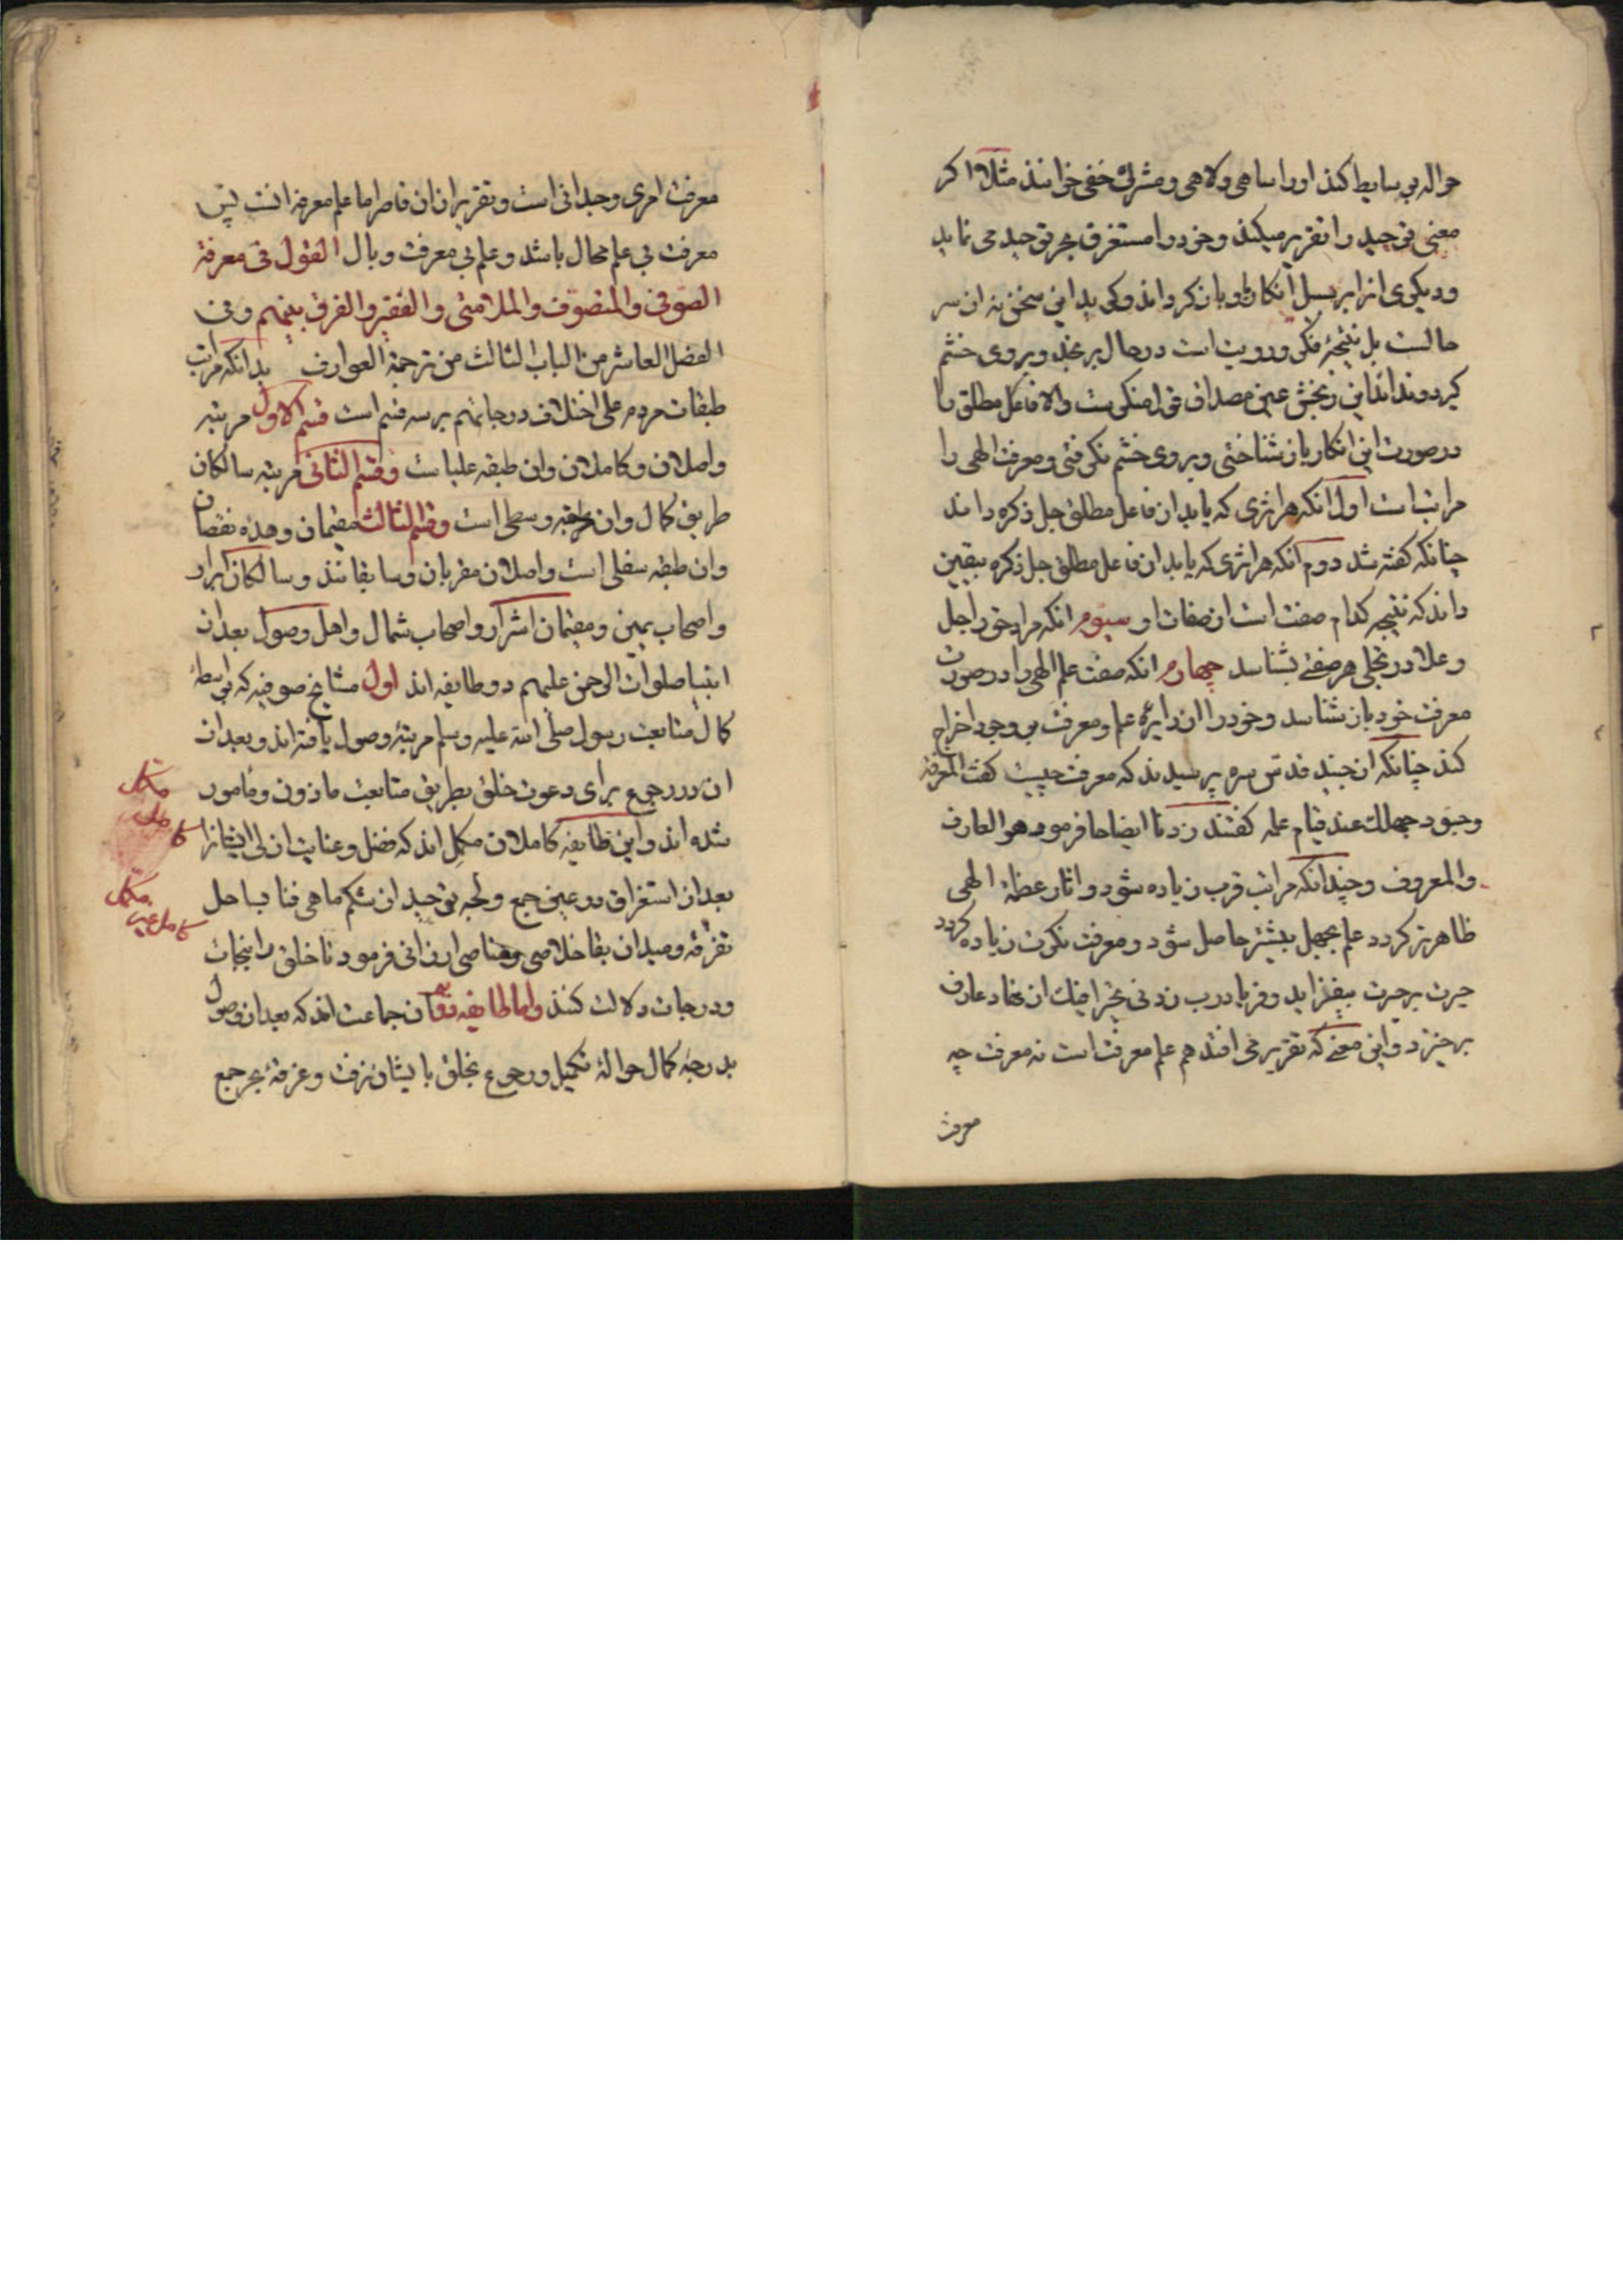 حواله بوسایط کند اورا ساهی ولاهی ومشرک خفی خوانند مثلا اکر
معنی توحید را تقریر میکند وخود را مستغرق بحر توحید می نماید
ودیکری انرا بر سبیل انکار باو باز کرداند وکوید این سخن نه از سر
حالست بل نتیجهٔ فکر ورویت است در حال برنجد وبر وی خشم
کیرد ونداند این رنجش عین مصداق قول منکرست والا فاعل مطلق را
در صورت این انکار باز شناختی وبر وی خشم نکرفتی ومعرفت الهی را
مراتب است اول انکه هر اثری که یابد از فاعل مطلق جل ذکره داند
چنانکه کفته شد دوم انکه هر اثری که یابد از فاعل مطلق جل ذکره بیقین
داند که نتیجه کدام صفت است از صفات او سیوم انکه مراد حق را جل
وعلا در تجلی هر صفتی بشناسد چهارم انکه صفت علم الهی را در صورت
معرفت خود باز شناسد وخود را از دایرهٔ علم ومعرفت بل وجود اخراج
کند چنانکه از جنید قدس سره پرسیدند که معرفت چیست کفت المعرفة
وجود جهلک عند قیام علمه کفتند زدنا ایضاحا فرمود هو العارف
والمعروف وچندانکه مراتب قرب زیاده شود واثار عظمة الهی
ظاهرتر کردد علم بجهل بیشتر حاصل شود ومعرفت نکرت زیاده کردد
حیرت بر حیرت بیفزاید وفریاد رب زدنی تحیرا فیک از نهاد عارف
برخیزد واین معنی که تقریر می افتد هم علم معرفت است نه معرفت چه
معرفت
معرفت امری وجدانی است وتقریر از ان قاصر اما علم معرفه انست پس
معرفت بی علم محال باشد وعلم بی معرفت وبال القول فی معرفة
الصوفی والمتصوف والملامتی والفقیر والفرق بینهم وفی
الفصل العاشر من الباب الثالث من ترجمة العوارف بدانکه مراتب
طبقات مردم علی اختلاف درجاتهم بر سه قسم است قسم الاول مرتبه
واصلان وکاملان وان طبقه علیاست وقسم الثانی مرتبه سالکان
طریق کمال وان طبقه وسطی است وقسم الثالث مقیمان وهده نقصان
وان طبقه سفلی است واصلان مقربان وسابقانند وسالکان ابرار
واصحاب یمین ومقیمان اشرار واصحاب شمال واهل وصول بعد از
انبیا صلوات الرحمن علیهم دو طایفه اند اول مشایخ صوفیه که بواسطهٔ
کمال متابعت رسول صلی الله علیه وسلم مرتبهٔ وصول یافته اند وبعد از
ان در رجوع برای دعوت خلق بطریق متابعت ماذون ومامور
شده اند واین طایفه کاملان مکمل اند که فضل وعنایت ازلی ایشانرا
بعد از استغراق در عین جمع ولجه توحید از شکم ماهی فنا بساحل
تفرقه ومیدان بقا خلاصی ومناصی ارزانی فرمود تا خلق را بنجات
ودرجات دلالت کنند واما طایفه دوم ان جماعت اند که بعد از وصول
بدرجهٔ کمال حوالهٔ تکمیل ورجوع بخلق بایشان نرفت وغرقهٔ بحر جمع
مکمل
کامل
مکمل
کامل غیر